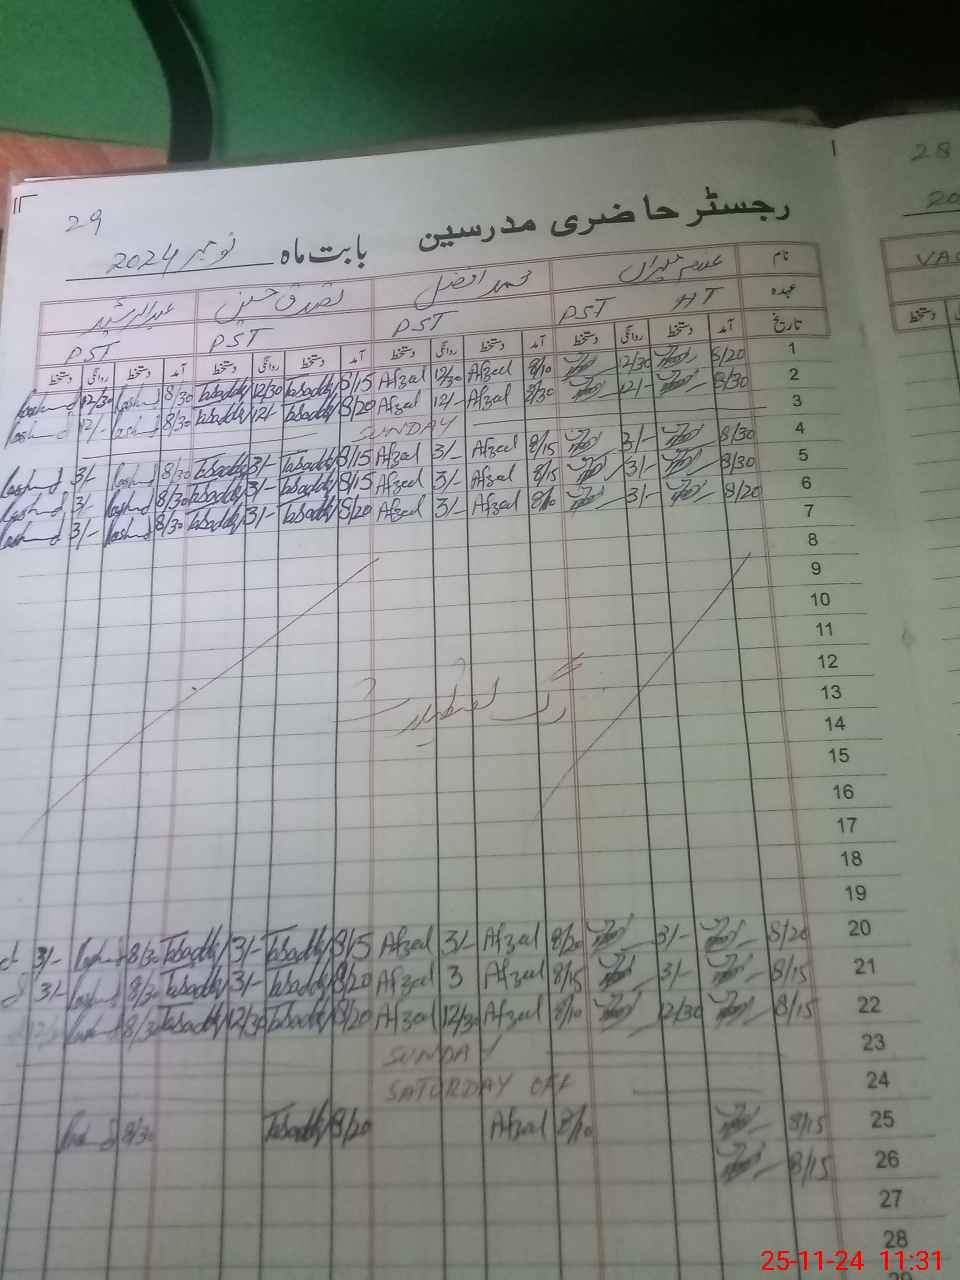 29
28
رجسٹر حاضری مدرسین
بابت ماہ نومبر 2024
20
نام
غلام
محمد افضل
تصدق حسین
عبدالرشید
VAC
عہدہ
HT
PST
PST
PST
PST
تاریخ
آمد دستخط روانگی دستخط آمد دستخط روانگی دستخط آمد دستخط روانگی دستخط آمد دستخط روانگی دستخط
دستخط
1 8/20 12/30 8/10 Afzal 12/30 Afzal 8/15 Tasadduq 12/30 Tasadduq 8/30 Rashid 12/30 Rashid
2 8/30 12/- 8/30 Afzal 12/- Afzal 8/20 Tasadduq 12/- Tasadduq 8/30 Rashid 12/- Rashid
3 SUNDAY
4 8/30 3/- 8/15 Afzal 3/- Afzal 8/15 Tasadduq 3/- Tasadduq 8/30 Rashid 3/- Rashid
5 8/30 3/- 8/15 Afzal 3/- Afzal 8/15 Tasadduq 3/- Tasadduq 8/30 Rashid 3/- Rashid
6 8/20 3/- 8/10 Afzal 3/- Afzal 8/20 Tasadduq 3/- Tasadduq 8/30 Rashid 3/- Rashid
7
8
9
10
11
12
13
14
15
16
17
18
19
20 8/20 3/- 8/20 Afzal 3/- Afzal 8/15 Tasadduq 3/- Tasadduq 8/30 Rashid 3/-
21 8/15 3/- 8/15 Afzal 3 Afzal 8/20 Tasadduq 3/- Tasadduq 8/30 Rashid 3/-
22 8/15 12/30 8/10 Afzal 12/30 Afzal 8/20 Tasadduq 12/30 Tasadduq 8/30 Rashid
23 SUNDAY
24 SATURDAY OFF
25 8/15 8/10 Afzal 8/20 Tasadduq 8/30 Rashid
26 8/15
27
28
29
25-11-24 11:31